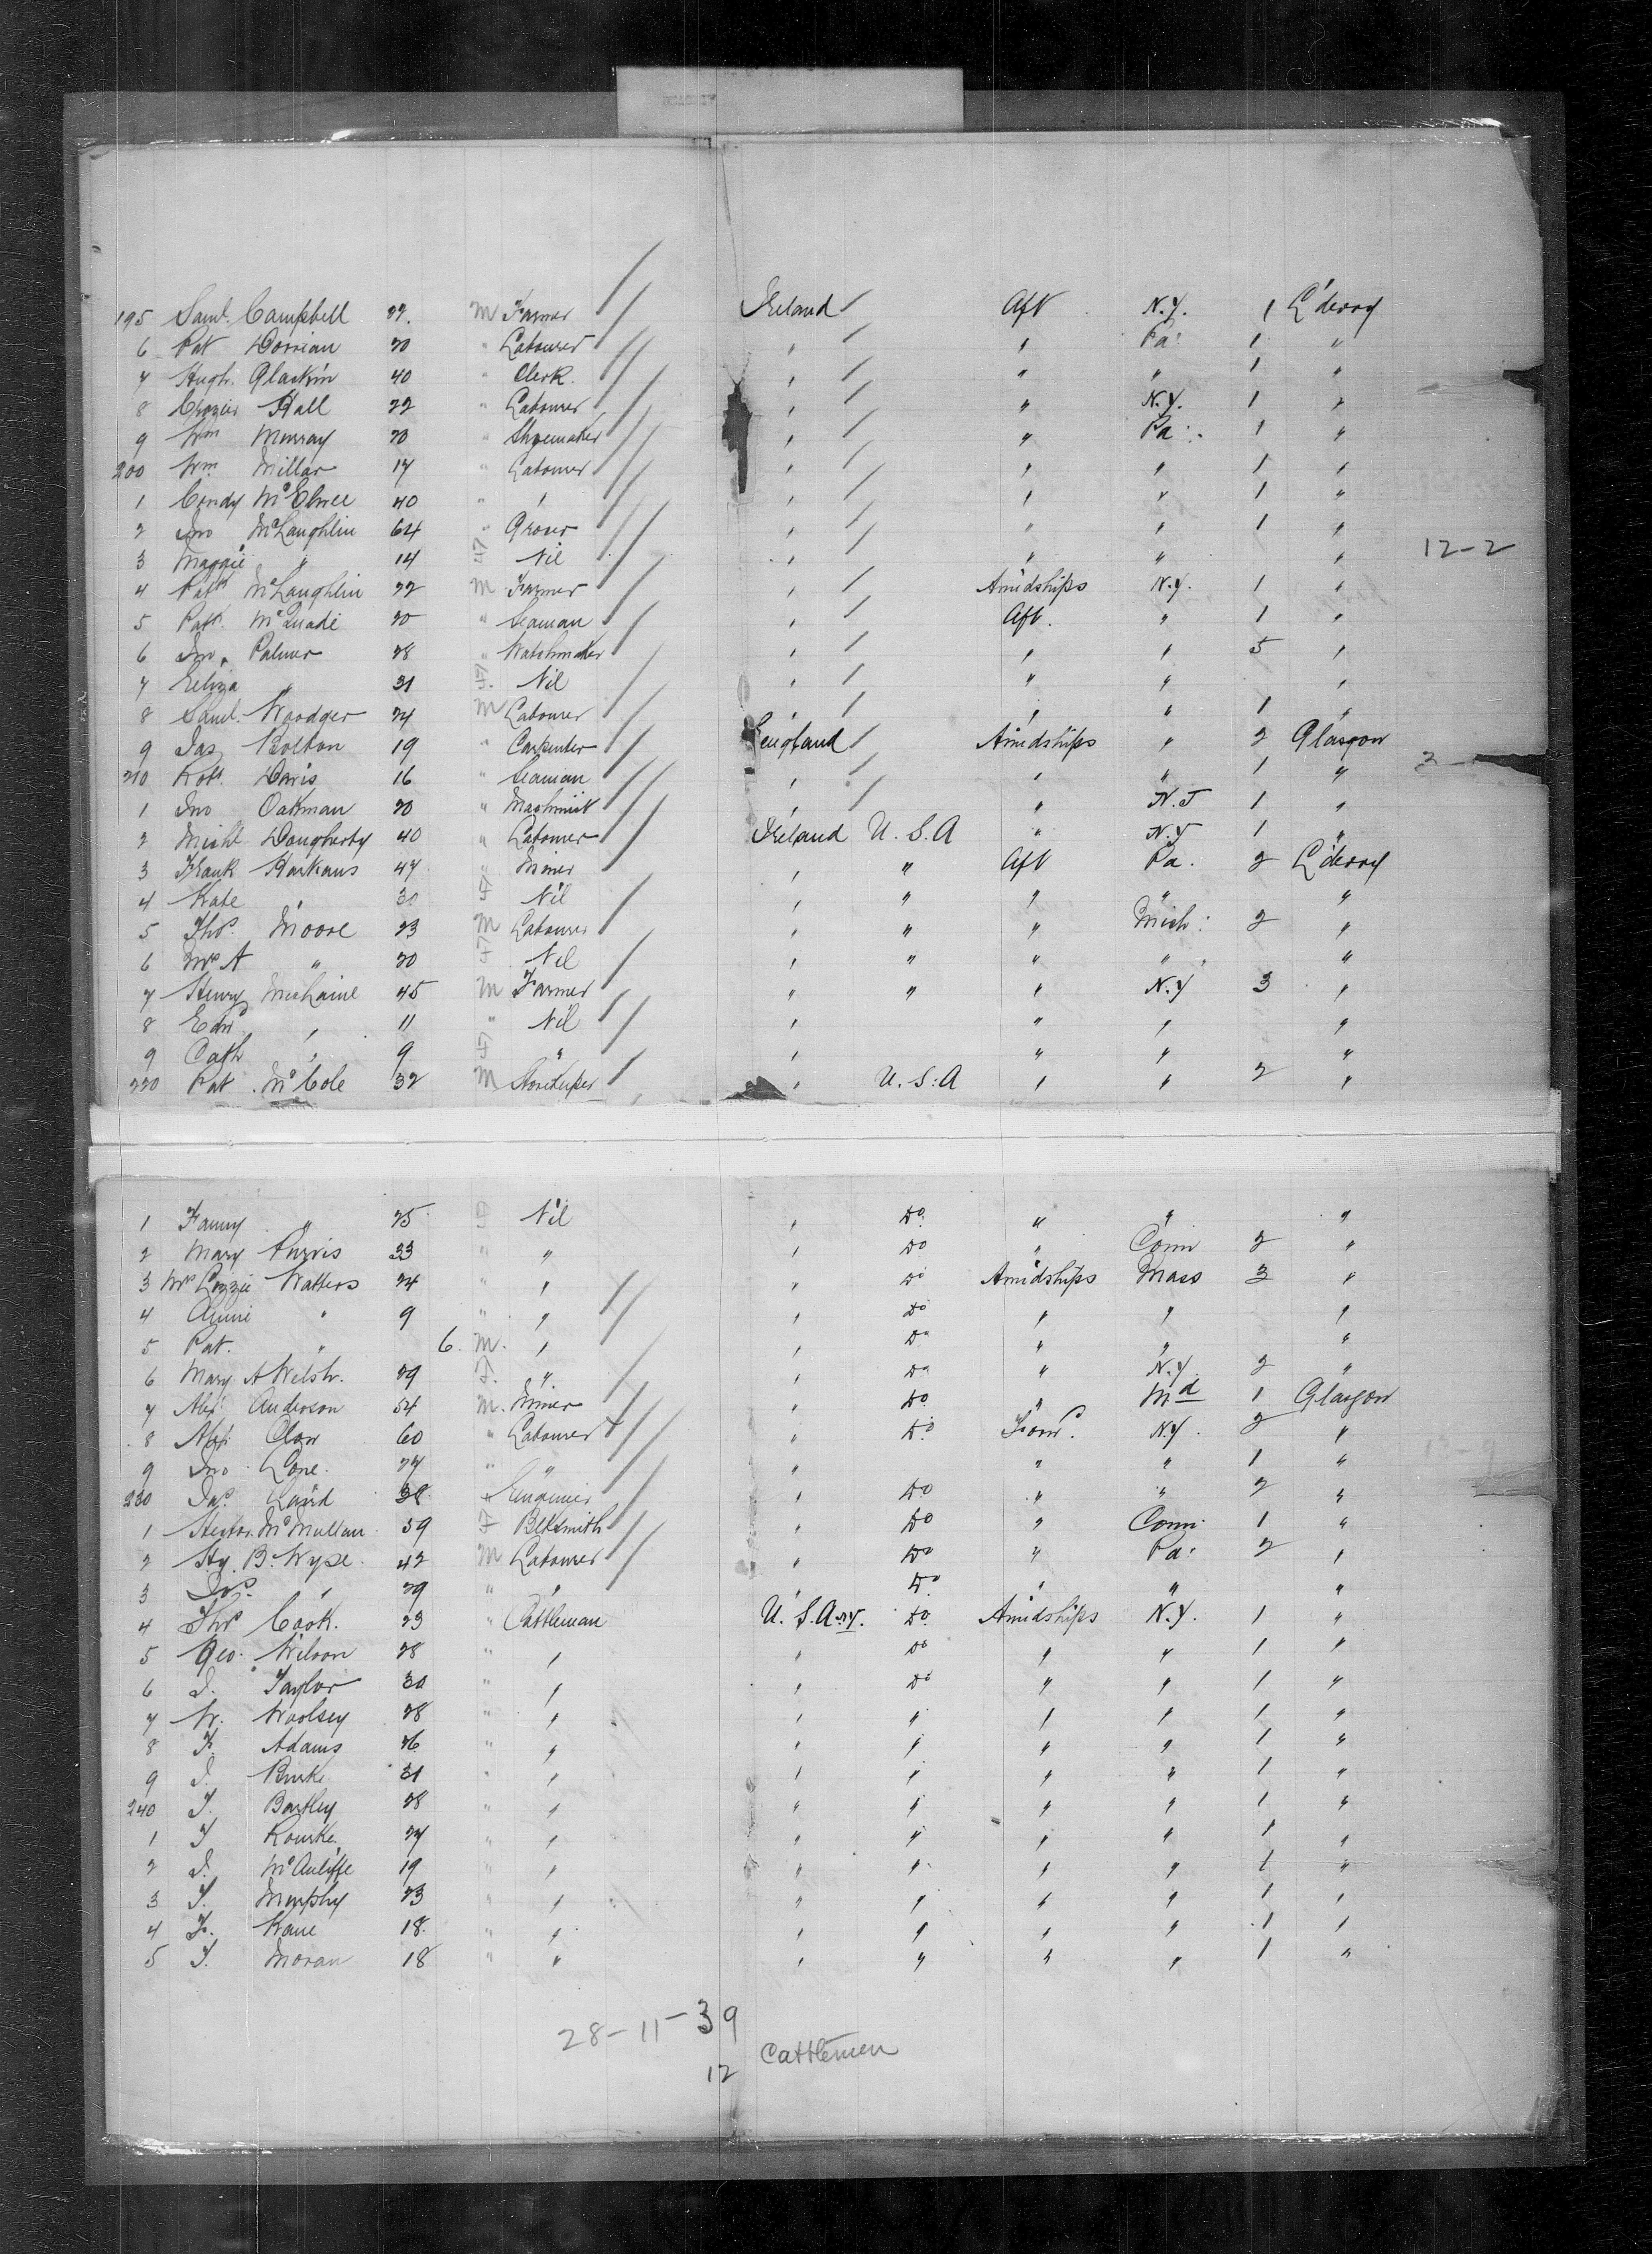 195 Saml. Campbell 22. M Farmer Ireland Aft N.Y. 1 L'derry
6 Pat Dorrian 20 " Labourer " " Pa. 1 "
7 Hugh. Glackin 40 " Clerk. " " " 1 "
8 Crozier Hall 22 " Labourer " " N.Y. 1 "
9 Wm Murray 20 " Shoemaker " " Pa. 1 "
200 Wm. Millar 17 " Labourer " " " 1 "
1 Condy McElwee 40 " " " " " 1 "
2 Jno McLaughlin 64 " Grocer " " " 1 "
3 Maggie " 14 F Nil " " " " 12-2
4 Patk McLaughlin 22 M Farmer " Amidships N.Y. 1 "
5 Patk. McQuade 20 " Seaman " Aft. " 1 "
6 Jno. Palmer 28 " Watchmaker " " " 5 "
7 Eeliza " 31 F. Nil " " " "
8 Saml. Woodger 24 M Labourer " " " 1 "
9 Jas Bolton 19 " Carpenter England Amidships " 2 Glasgow
210 Robt. Davis 16 " Seaman " " " 1 "
1 Jno Oatman 20 " Machinist " " N.J 1 "
2 Michl Dougherty 40 " Labourer Ireland U.S.A " N.Y 1 "
3 Frank Harkans 47 " Miner " " Aft Pa. 2 L'derry
4 Kate " 30 F Nil " " " " "
5 Thos. Moore 23 M Labourer " " " Mich: 2 "
6 Mrs A " 20 F Nil " " " " "
7 Henry 45 M Farmer " " " N.Y 3 "
8 Edw " 11 " Nil " " " "
9 Cath " 9 F " " " " "
220 Pat. McCole 32 M Storekeeper " U.S.A " " 2 "
1 Fanny " 25 F Nil " Do. " " "
2 Mary Purvis 33 " " " Do " Conn 2 "
3 Mrs Lizzie Watters 24 " " " Do Amidships Mass 3 "
4 Annie " 9 " " " Do " " "
5 Pat. " 6. M. " " Do " " "
6 Mary A Welsh. 29 F. " " Do " N.Y. 2 "
7 Alex Anderson 54 M. Miner " Do. " Md 1 Glasgow
8 Alex Clow 60 " Labourer " Do. Forw. N.Y. 2 "
9 Jno Lone. 27 " " " " " 1 "
230 Jas. Laird 38 " Engineer " Do " " 2 "
1 Hector. McMullan 59 F Blksmith " Do " Conn. 1 "
2 Hy. B. Wype. 42 M Labourer " Do " Pa. 2 "
3 Jas. " 29 " " " Do. " " "
4 Thos Cook. 23 " Cattleman U.S.A. NY. Do. Amidships N.Y. 1 "
5 Geo. Wilson 28 " " " Do " " 1 "
6 J. Taylor 30 " " " Do " " 1 "
7 W. Woolsey 28 " " " " " " 1 "
8 F. Adams 26 " " " " " " 1 "
9 J. Burke 31 " " " " " " 1 "
240 T. Bartley 28 " " " " " " 1 "
1 T Rourke 27 " " " " " " 1 "
2 J. McAuliffe 19 " " " " " " 1 "
3 T. Murphy 23 " " " " " " 1 "
4 F. Kane 18. " " " " " " 1 "
5 T. Moran 18 " " " " " " 1 "
28-11-39
12 Cattlemen